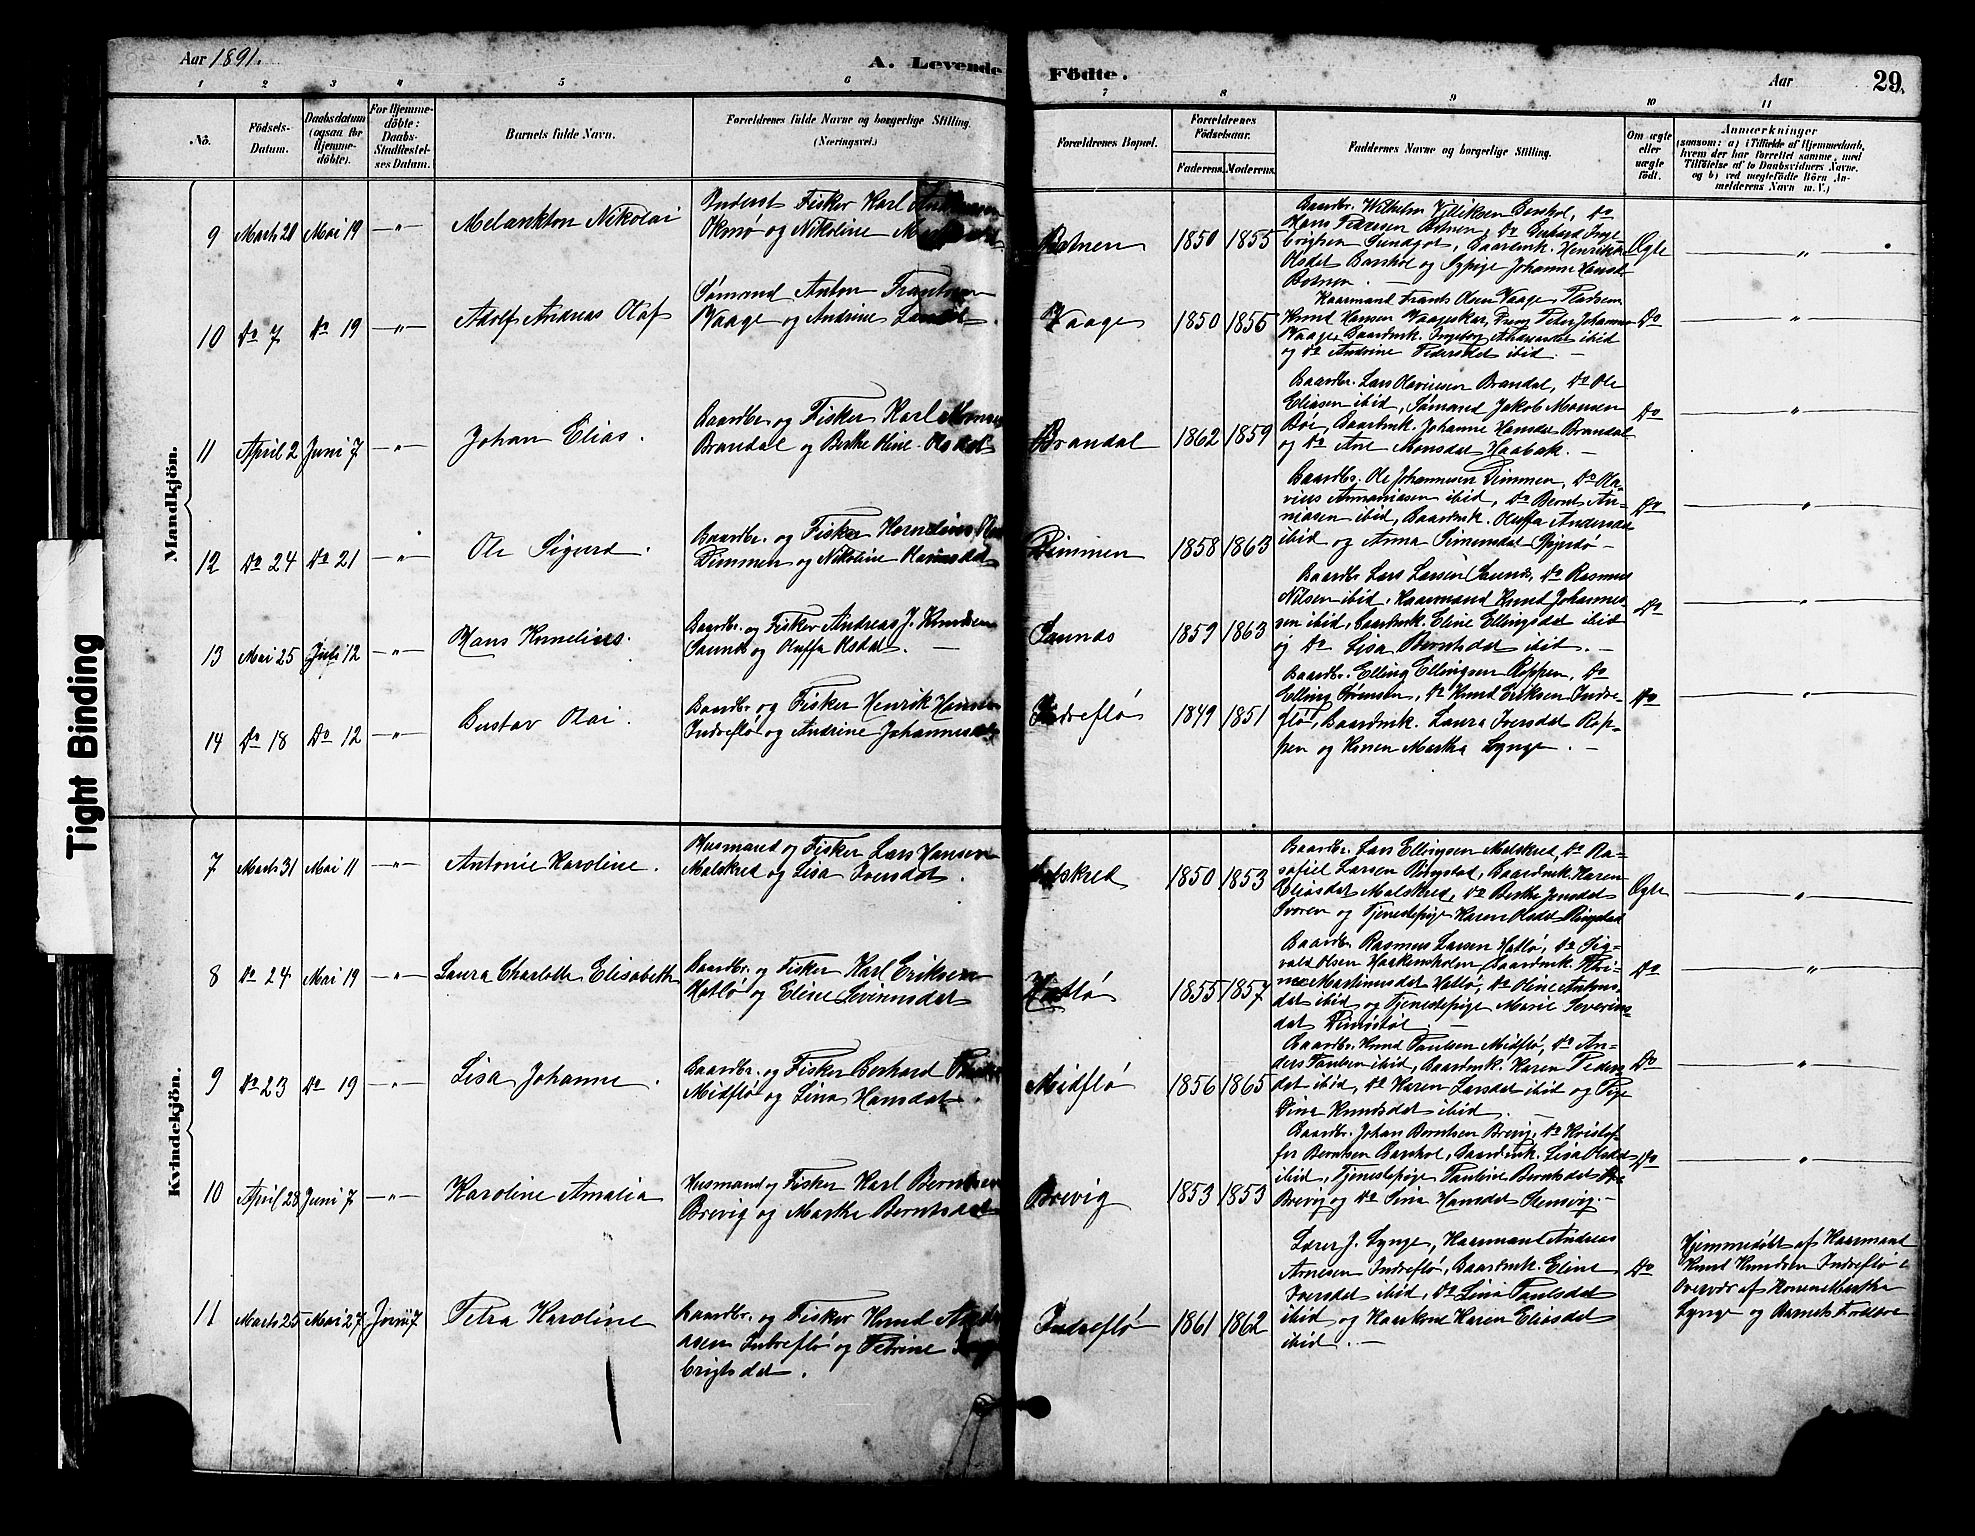 Aar 1891.
A. Levende Födte.
Aar
29.
1 2 3 4 5 6 7 8 9 10 11
No.
Födsels-
Datum.
Daabsdatum
(ogsaa for
Hjemme-
döbte).
For Hjemme-
döbte:
Daabs-
Stadfæstel-
ses Datum.
Barnets fulde Navn.
Forældrenes fulde Navne og borgerlige Stilling.
(Næringsvei.)
Forældrenes Bopæl.
Forældrenes
Födselsaar.
Faderens. Moderens.
Faddernes Navne og borgerlige Stilling.
Om ægte
eller
uægte
födt.
Anmærkninger
(saasom: a) i Tilfælde af Hjemmedaab,
hvem der har forrettet samme, med
Tilföielse af to Daabsvidners Navne,
og b) ved uægtefödte Börn An-
melderens Navn m. V.)
Mandkjön.
9 Marts 20 Mai 19 —„— Melankton Nikolai
Inderst Fisker Karl
og Nikoline
Botnen 1850 1855
Baardbr. Wilhelm
Hans Pedersen Botnen, Do
Baardmk.
Olsdat Barshol og Johanne
Botnen.
Ægte —„—
10 Do 7 Do 19 —„— Adolf Andreas Olaf
Sømand Anton Frantsen
Vaage og Andrine
Vaage 1850 1855
Kaarmand Frants Olsen Vaage,
Knud Hansen Vaageskar, Dreng Peter
Vaage, Baardmk. Ingeborg ibid
og Do Andrine Pedersdat ibid. —
Do —„—
11 April 2 Juni 7 —„— Johan Elias.
Baardbr. og Fisker Karl
Brandal og Berthe Oline Olsdat
Brandal 1862 1859
Baardbr. Lars Brandal, Do Ole
Eliasen ibid, Sømand Jakob Monsen
Bøe, Baardmk. Johanne Hansdat Brandal
og Do Ane Monsdat Haabak. —
Do —„—
12 Do 24 Do 21 —„— Ole Sigurd.
Baardbr. og Fisker
Dimmen og Nikoline
Dimmen 1858 1863
Baardbr. Ole Johannesen Dimmen, Do Ola-
vius Annaniasen ibid, Do Bernt An-
niasen ibid, Baardmk. Oluffa Andersdat
ibid og Anna Simensdat —
Do —„—
13 Mai 25 Juli 12 —„— Hans Kornelius.
Baardbr. og Fisker Andreas J. Knudsen
Saunes og Oluffa Olsdat. —
Saunes 1859 1863
Baardbr. Lars Larsen Saunes, Do Rasmus
Nilsen ibid, Kaarmand Knud Johannes-
sen ibid, Baardmk. Eline Ellingsdat ibid
og Do Lisa Berntsdat ibid. —
Do —„—
14 Do 18 Do 12 —„— Gustav Olai.
Baardbr. og Fisker Henrik
Indreflø og Andrine Johannesdat
Indreflø 1849 1851
Baardbr. Elling Ellingsen Roppen, Do
Elling Sørensen, Do Knud Eriksen Indre-
flø, Baardmk. Laura Iversdat Rop-
pen og Konen Martha Lynge. —
Do —„—
Kvindekjön.
7 Marts 31 Mai 11 —„— Antonie Karoline.
Husmand og Fisker Lars Hansen
Malskred og Lisa Iversdat.
Malskred 1850 1853
Baardbr. Lars Ellingsen Malskred, Do Ra-
fael Larsen Ringstad, Baardmk. Karen
Eliasdat Malskred, Do Berthe Jensdat
og Tjenestepige Karen Olsdat Ringstad
Ægte —„—
8 Do 24 Mai 19 —„— Laura Charlotte Elisabeth
Baardbr. og Fisker Karl Eriksen
Hatlø og Eline Severinsdat
Hatlø 1855 1857
Baardbr. Rasmus Larsen Hatlø, Do Sig-
vald Olsen Haakensholen, Baardmk.
Martinusdat Hatlø, Do Oline Antons-
dat ibid og Tjenestepige Marie Severins-
dat
Do —„—
9 Do 23 Do 19 —„— Lisa Johanne.
Baardbr. og Fisker Berhard
Midflø og Lina Hansdat.
Midflø 1856 1865
Baardbr. Knud Paulsen Midflø, Do An-
ders Paulsen ibid, Baardmk. Karen Peders-
dat ibid, Do Karen Larsdat ibid og Pige
Knudsdat ibid. —
Do —„—
10 April 28 Juni 7 —„— Karoline Amalia
Husmand og Fisker Karl Berntsen
Brevig og Marthe Berntsdat
Brevig 1853 1853
Baardbr. Johan Berntsen Brevig, Do Kristof-
fer Berntsen Barshol, Baardmk. Lisa Olsdat
ibid, Tjenestepige Pauline Berntsdat
Brevig og Do Hansdat —
Do —„—
11 Marts 25 Mai 27 Juni 7 Petra Karoline
Baardbr. og Fisker Knud
Indreflø og Petrine
brigtsdat.
Indreflø 1861 1862
Lærer J. Lynge, Kaarmand Andreas
Arnesen Indreflø, Baardmk. Eline
Iversdat ibid, Do Lina Paulsdat
ibid og Kaarkone Karen Eliasdat
ibid. —
Do
Hjemmedøbt af Kaarmand
Knud Knudsen Indreflø i
Overvær af Konen Martha
Lynge og Barnets Forældre
Tight Binding